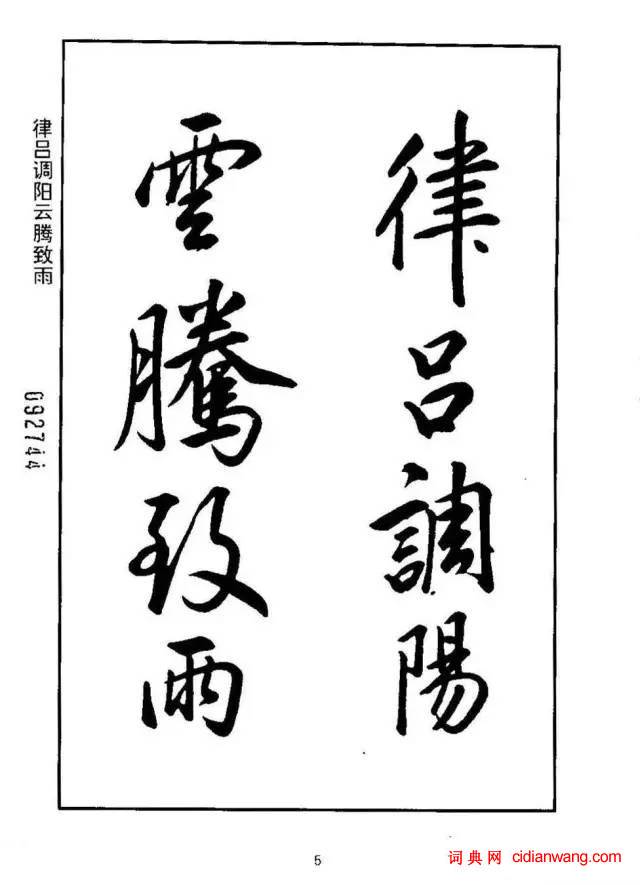 律呂調陽
雲騰致雨
律吕调阳云腾致雨
092744
5
词典网 cidianwang.com